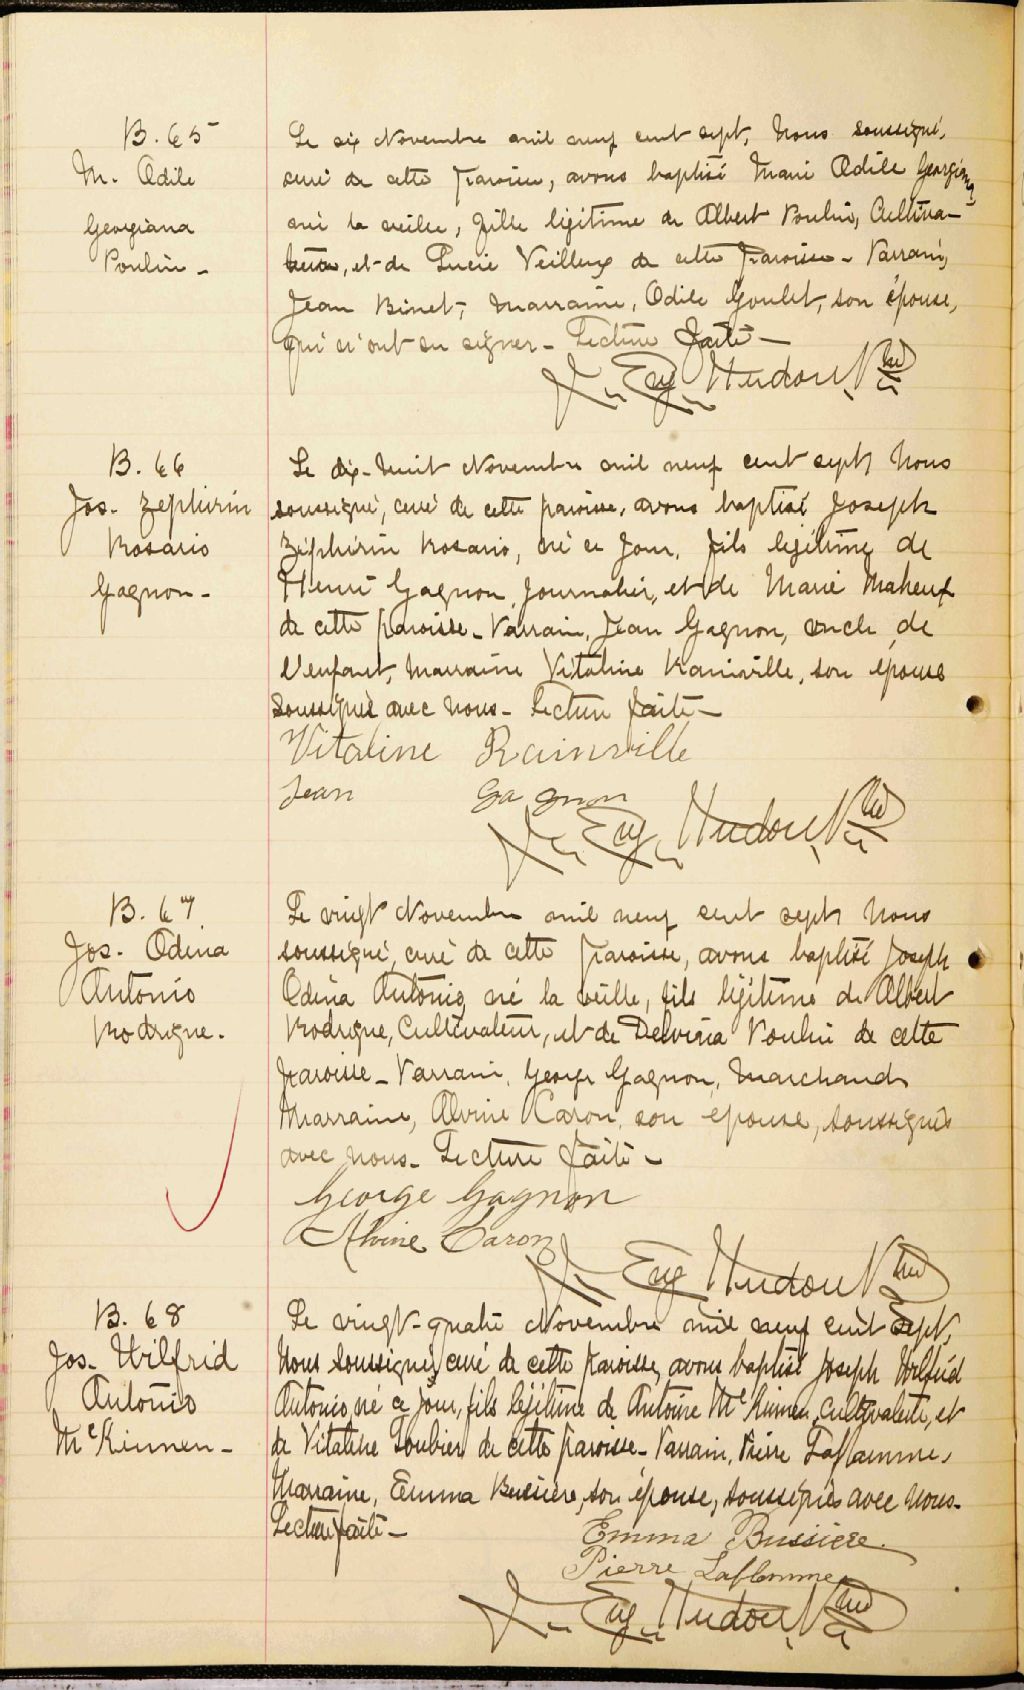 B. 65
M. Odile
Georgiana
Poulin -
Le six Novembre mil neuf cent sept, Nous soussigné,
curé de cette paroisse, avons baptisé Marie Odile Georgiana
née la veille, fille légitime de Albert Poulin, Cultiva-
teur, et de Lucie Veilleux de cette paroisse - Parrain,
Jean Binet, Marraine, Odile Goulet, son épouse,
qui n'ont su signer - Lecture faite -
J. Eug. Hudon, Ptre
B. 66
Jos. Zéphirin
Rosario
Gagnon -
Le dix-huit Novembre mil neuf cent sept, Nous
soussigné, curé de cette paroisse, avons baptisé Joseph
Zéphirin Rosario, né ce jour, fils légitime de
Henri Gagnon, Journalier, et de Marie Maheux
de cette paroisse - Parrain, Jean Gagnon, oncle de
l'enfant, Marraine Vitaline Rainville, son épouse
soussignés avec nous - Lecture faite -
Vitaline Rainville
Jean Gagnon
J. Eug. Hudon, Ptre
B. 67
Jos. Odina
Antonio
Rodrigue.
Le vingt Novembre mil neuf cent sept, Nous
soussigné, curé de cette paroisse, avons baptisé Joseph
Odina Antonio, né la veille, fils légitime de Albert
Rodrigue, Cultivateur, et de Delvina Poulin de cette
paroisse - Parrain, George Gagnon, Marchand,
Marraine, Alvine Caron, son épouse, soussignés
avec nous - Lecture faite -
George Gagnon
Alvine Caron
J. Eug. Hudon Ptre
B. 68
Jos. Wilfrid
Antonio
McKinnen -
Le vingt-quatre Novembre mil neuf cent sept,
Nous soussigné, curé de cette paroisse, avons baptisé Joseph Wilfrid
Antonio, né ce jour, fils légitime de Antoine McKinnen, Cultivateur, et
de Vitaline Loubier de cette paroisse - Parrain, Pierre Laflamme,
Marraine, Emma Bussière, son épouse, soussignés avec nous -
Lecture faite -
Emma Bussiere.
Pierre Laflamme
J. Eug. Hudon, Ptre